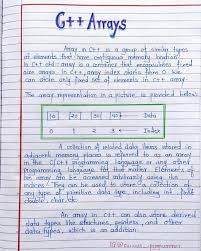 C++ Arrays
Array in C++ is a group of similar types
of elements that have contiguous memory location.
In C++ std::array is a container that encapsulates fixed
size arrays. In C++, array index starts from 0. We
can store only fixed set of elements in C++ array.
The array representation in a picture is provided below:
10 20 30 40 Data
0 1 2 3 Index
A collection of related data items stored in
adjacent memory places is referred to as an array
in the C/C++ programming language or any other
programming language for that matter. Elements of
an array can be accessed arbitrarily using its
indices. They can be used to store a collection of
any type of primitive data type, including int, float
double, char, etc.
An array in C++ can also store derived
data types like structures, pointers, and other
data types, which is an addition.